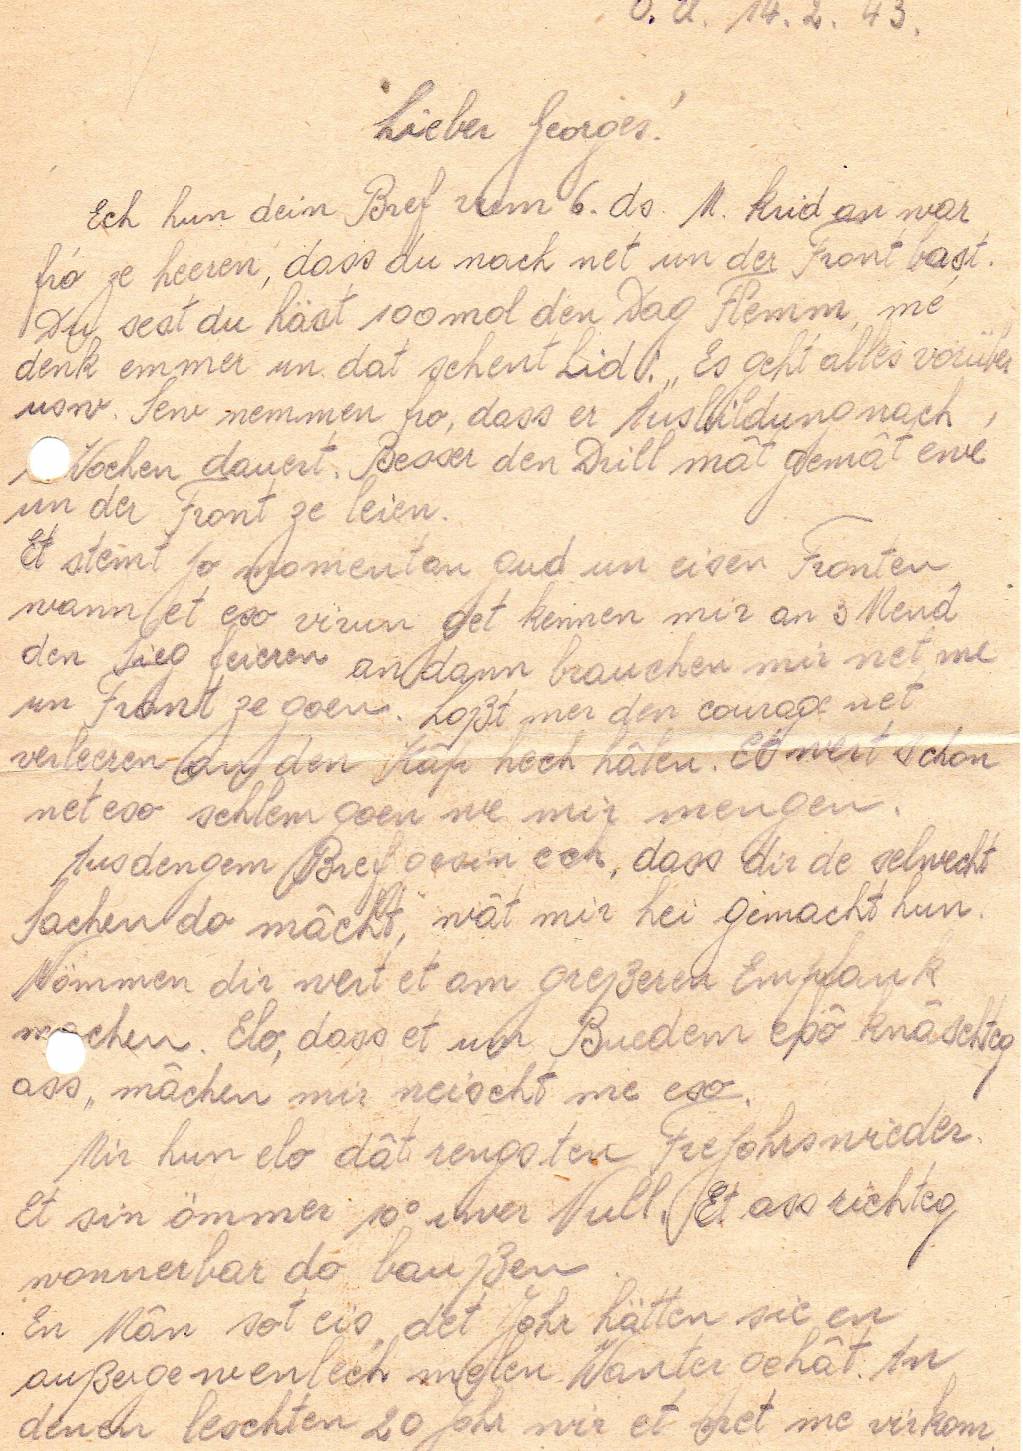 O.U. 14.2.43.
Lieber Georges!
Ech hun dein Bref vum 6. ds. M. krid an war
fró ze heeren, dass du nach net un der Front bast.
Du sest du häst 100mol den Dag Flemm, mé
denk emmer un dat schent Lid: „Es geht alles vorüber
usw. Sew nemmen fro, dass er Ausbildung nach
Wochen dauert. Besser den Drill mât gemât ewé
un der Front ze leien.
Et stêmt jo momentan gud un eisen Fronten
wann et eso virun get kennen mir an 3 Mend
den Sieg feieren an dann brauchen mir net me
un Front ze goen. Loßt mer den courage net
verleeren an den Kâp hech hâlen. Et wert schon
net eso schlem goen we mir mengen.
Aus dengem Bref gesin ech, dass dir de selwecht
Sachen do mâcht, wât mir hei gemacht hun.
Mömmen dir wert et am greßeren Empfank
machen. Elo, dass et um Buedem epô knäschteg
ass, mâchen mir neischt me eso.
Mir hun elo dât rengsten Frejohrswieder.
Et sin ömmer 10° iwer Null. Et ass richteg
wonnerbar do baußen
En Mân sot eis, dët Johr hätten sie en
außergewenlech melen Wanter gehât. An
denen leschten 20 Johr wir et net me virkom